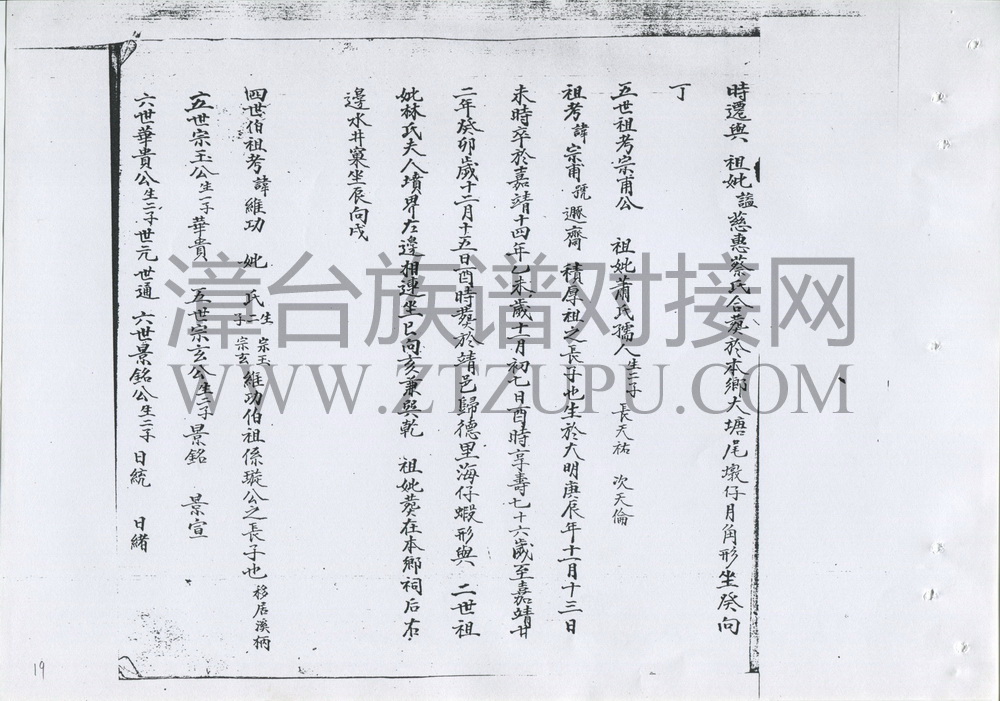 時遷與 祖妣謚慈惠蔡氏合葬於本鄉大塘尾墩仔月角形坐癸向
丁
五世祖考宗甫公 祖妣蕭氏孺人生二子 長天祐 次天倫
祖考諱宗甫號遯齋 積厚祖之長子也生於大明庚辰年十一月十三日
未時卒於嘉靖十四年乙未歲十一月初七日酉時享壽七十六歲至嘉靖廿
二年癸卯歲十二月十五日酉時葬於靖邑歸德里海仔蝦形與 二世祖
妣林氏夫人墳界左邊相連坐巳向亥兼巽乾 祖妣葬在本鄉祠后右
邊水井窠坐辰向戌
四世伯祖考諱維功 妣 氏生二子宗玉宗玄維功伯祖係璇公之長子也移居溪柄
五世宗玉公生一子華貴 五世宗玄公生二子景銘 景宣
六世華貴公生二子世元 世通 六世景銘公生二子日統 日緒
漳台族谱对接网
WWW.ZTZUPU.COM
19